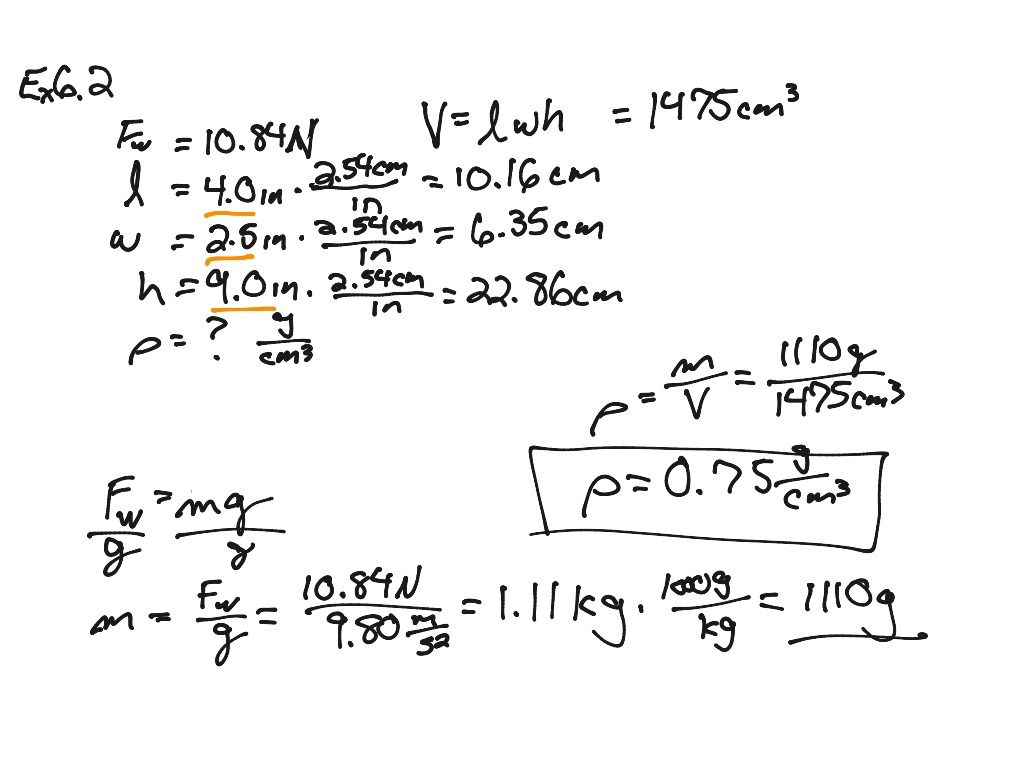 Ex6.2
F_w = 10.84N
V = lwh = 1475cm³
l = 4.0in · 2.54cm/in = 10.16cm
w = 2.5in · 2.54cm/in = 6.35cm
h = 9.0in · 2.54cm/in = 22.86cm
ρ = ? g/cm³
ρ = m/V = 1110g/1475cm³
ρ = 0.75 g/cm³
F_w/g = mg/g
m = F_w/g = 10.84N/9.80 m/s² = 1.11kg · 1000g/kg = 1110g